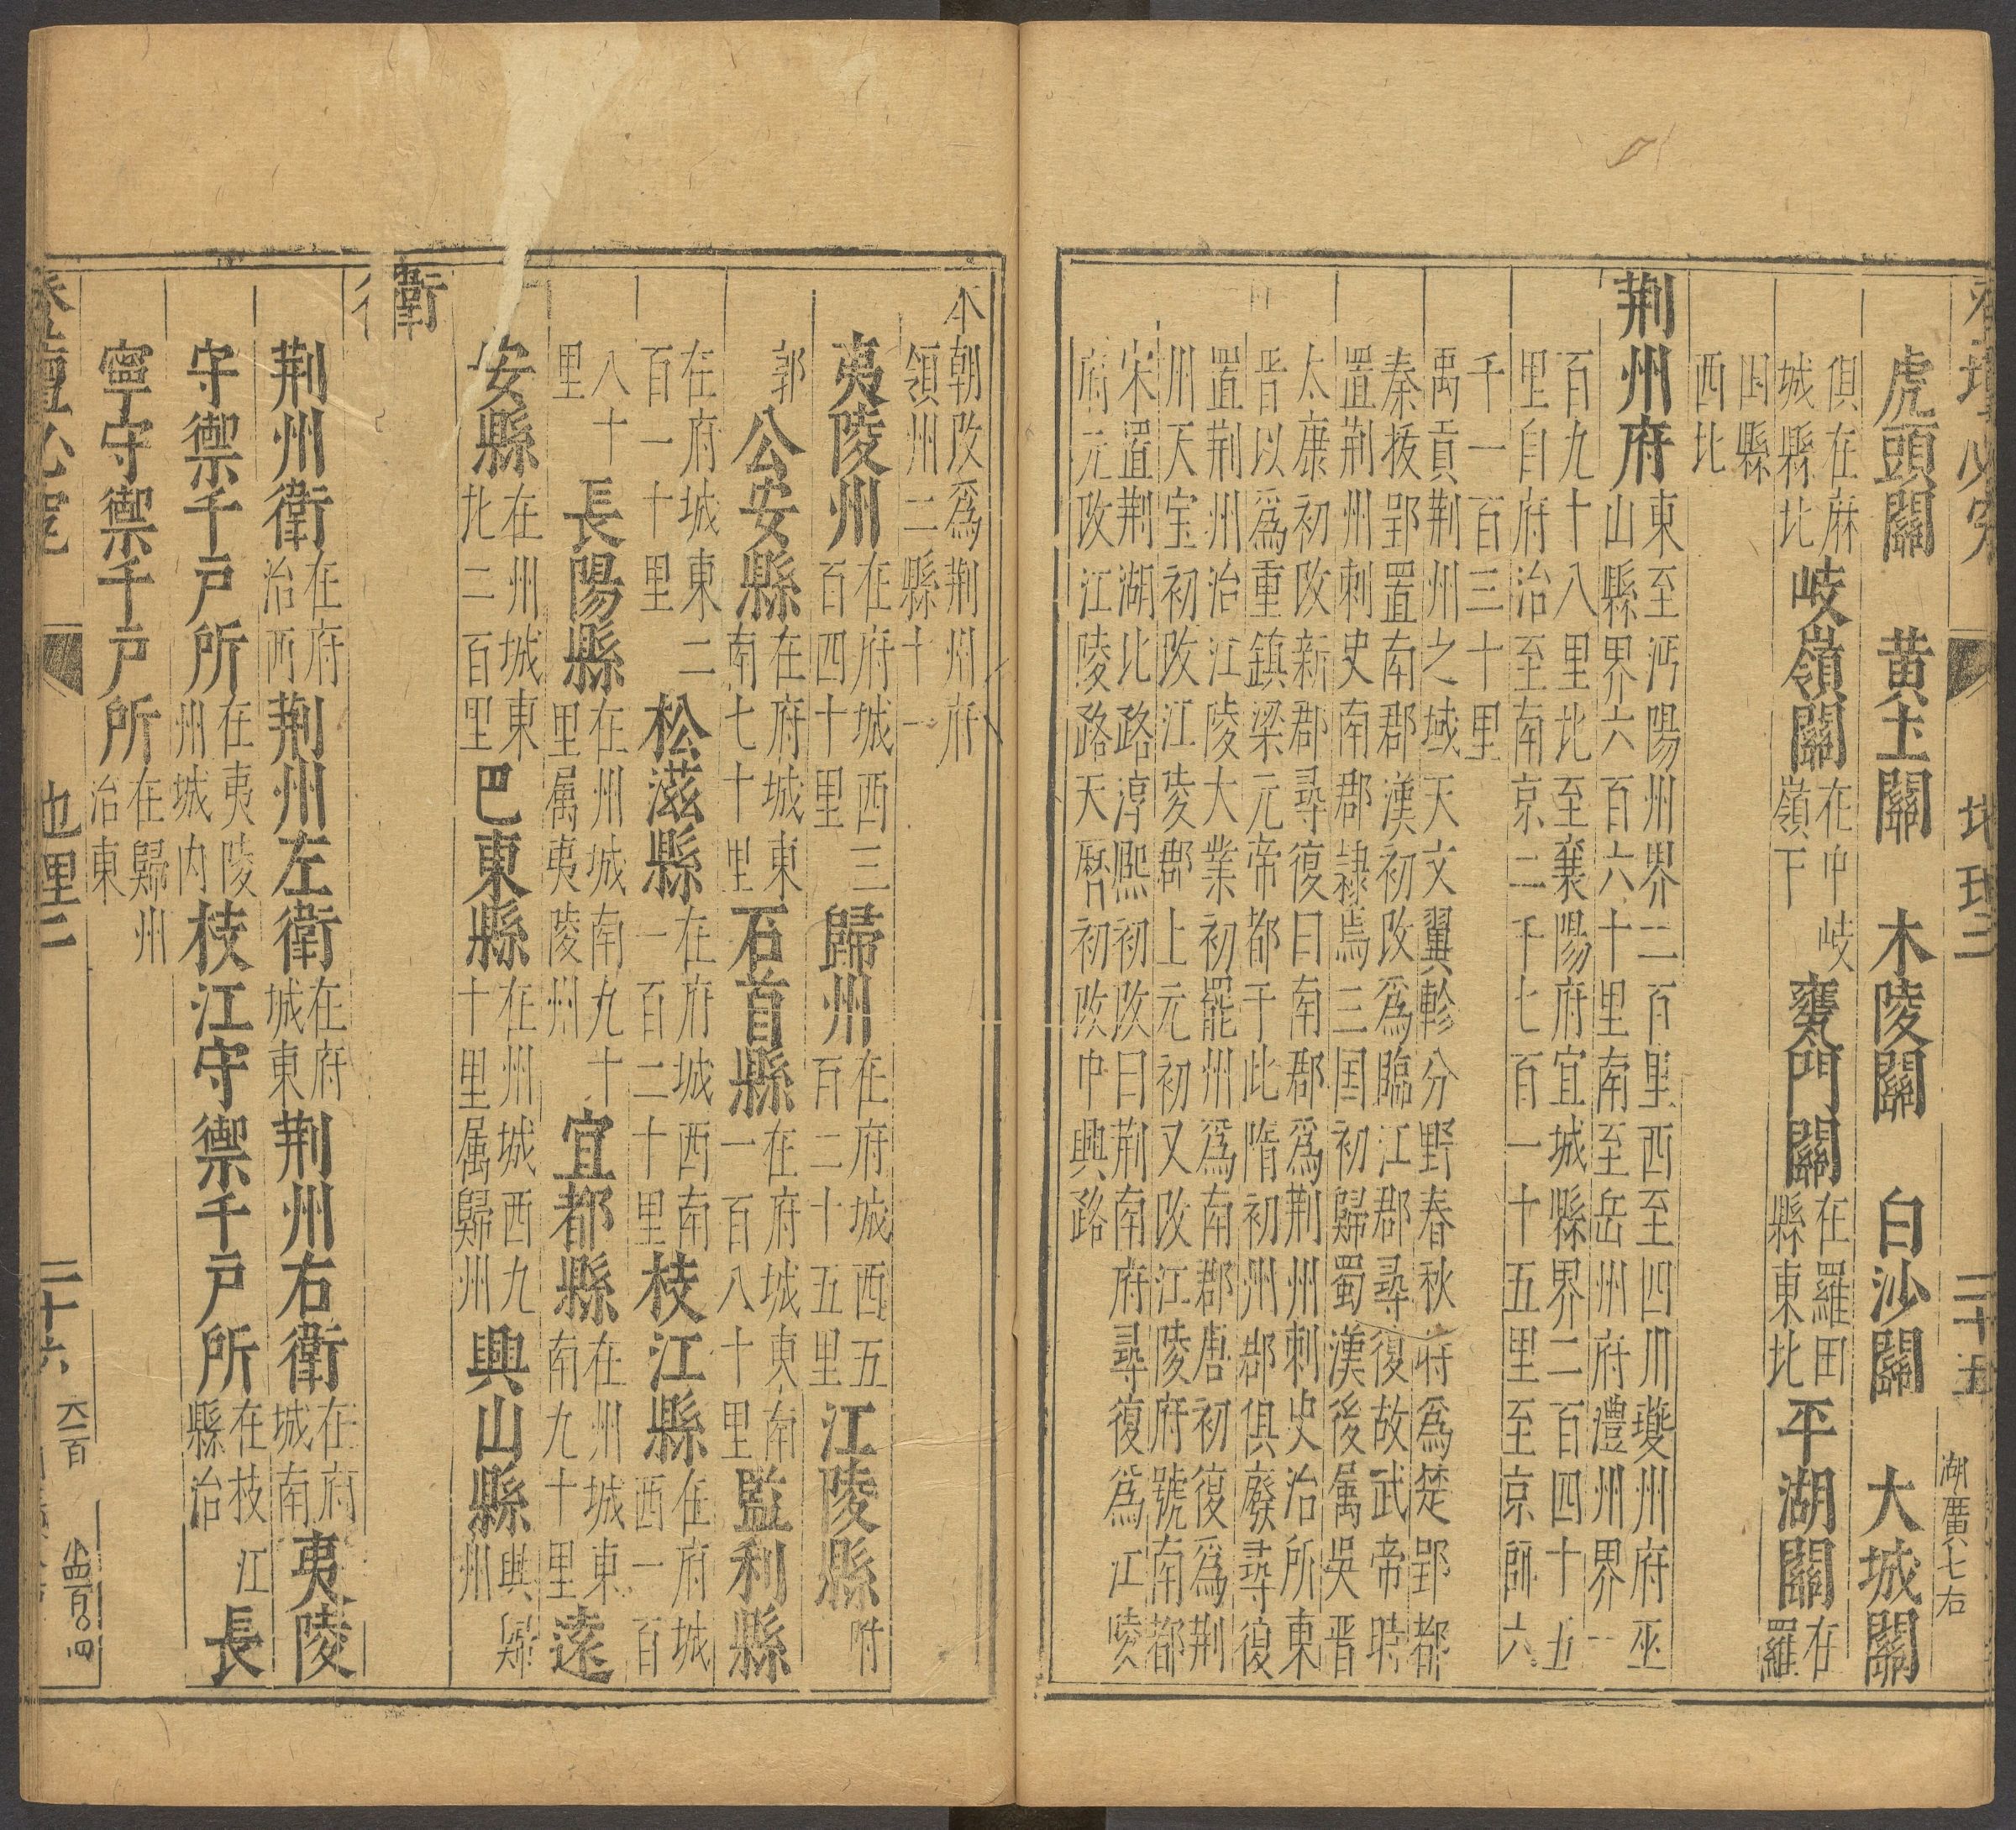 虎頭關 黄土關 木陵關 白沙關 大城關
俱在麻
城縣北
岐嶺關
在中岐
嶺下
甕門關
在羅田
縣東北
平湖關
在
羅
田縣
西北
荆州府
東至沔陽州界二百里西至四川夔州府巫
山縣界六百六十里南至岳州府澧州界一
百九十八里北至襄陽府宜城縣界二百四十五
里自府治至南京二千七百一十五里至京師六
千一百三十里
禹貢荆州之域天文翼軫分野春秋時爲楚郢都
秦拔郢置南郡漢初改爲臨江郡尋復故武帝時
置荆州刺史南郡隷焉三国初歸蜀漢後属吳晋
太康初改新郡尋復曰南郡爲荆州刺史治所東
晋以爲重鎮梁元帝都于此隋初州郡俱廢尋復
置荆州治江陵大業初罷州爲南郡唐初復爲荆
州天宝初改江陵郡上元初又改江陵府號南都
宋置荆湖北路淳熈初改曰荆南府尋復爲江陵
府元改江陵路天曆初改中興路
湖廣七右
本朝改爲荆州府
領州二縣十一
夷陵州
在府城西三
百四十里
歸州
在府城西五
百二十五里
江陵縣
附
郭
公安縣
在府城東
南七十里
石首縣
在府城東南
一百八十里
監利縣
在府城東二
百一十里
松滋縣
在府城西南
一百二十里
枝江縣
在府城
西一百
八十
里
長陽縣
在州城南九十
里属夷陵州
宜都縣
在州城東
南九十里
遠
安縣
在州城東
北二百里
巴東縣
在州城西九
十里属歸州
興山縣
與歸
州
衛
荆州衛
在府
治西
荆州左衛
在府
城東
荆州右衛
在府
城南
夷陵
守禦千戸所
在夷陵
州城内
枝江守禦千戸所
在枝江
縣治
長
寧守禦千戸所
在歸州
治東
二十六